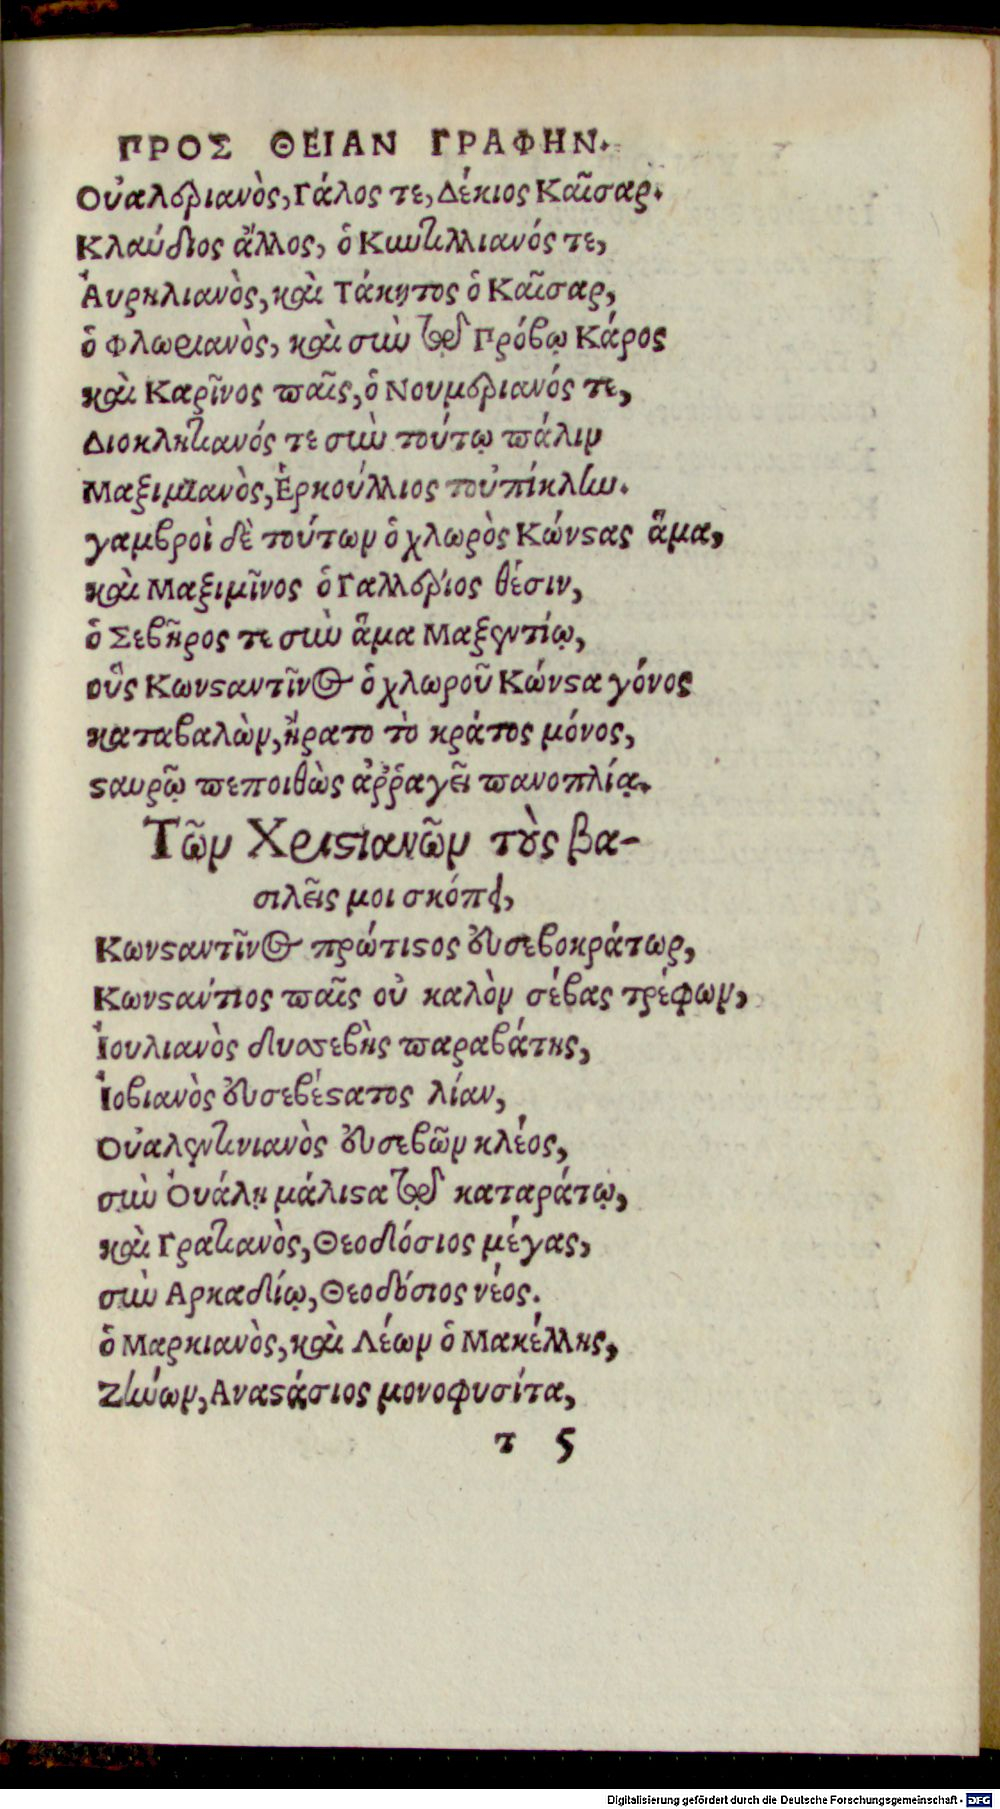 ΠΡΟΣ ΘΕΙΑΝ ΓΡΑΦΗΝ.
Οὐαλεριανὸς, Γάλος τε, Δέκιος Καῖσαρ.
Κλαύδιος ἄλλος, ὁ Κυντιλλιανός τε,
Ἀυρηλιανὸς, καὶ Τάκητος ὁ Καῖσαρ,
ὁ Φλωριανὸς, καὶ σὺν τῷ Πρόβῳ Κάρος
καὶ Καρῖνος παῖς, ὁ Νουμεριανός τε,
Διοκλητιανός τε σὺν τούτῳ πάλιν
Μαξιμιανὸς, Ἑρκούλλιος τοὐπίκλην.
γαμβροὶ δὲ τούτων ὁ χλωρὸς Κώνστας ἅμα,
καὶ Μαξιμῖνος ὁ Γαλλέριος θέσιν,
ὁ Σεβῆρος τε σὺν ἅμα Μαξεντίῳ,
οὓς Κωνσταντῖνος ὁ χλωροῦ Κώνστα γόνος
καταβαλὼν, ἤρατο τὸ κράτος μόνος,
σταυρῷ πεποιθὼς ἀῤῥαγεῖ πανοπλίᾳ.
Τῶν Χριστιανῶν τοὺς βα-
σιλεῖς μοι σκόπει,
Κωνσταντῖνος πρώτιστος εὐσεβοκράτωρ,
Κωνσταύτιος παῖς οὐ καλὸν σέβας τρέφων,
Ἰουλιανὸς δυσσεβὴς παραβάτης,
Ἰοβιανὸς εὐσεβέστατος λίαν,
Οὐαλεντινιανὸς εὐσεβῶν κλέος,
σὺν Ὀυάλῃ μάλιστα τῷ καταράτῳ,
καὶ Γρατιανὸς, Θεοδόσιος μέγας,
σὺν Αρκαδίῳ, Θεοδόσιος νέος.
ὁ Μαρκιανὸς, καὶ Λέων ὁ Μακέλλης,
Ζήνων, Αναστάσιος μονοφυσίτα,
τ 5
Digitalisierung gefördert durch die Deutsche Forschungsgemeinschaft - DFG